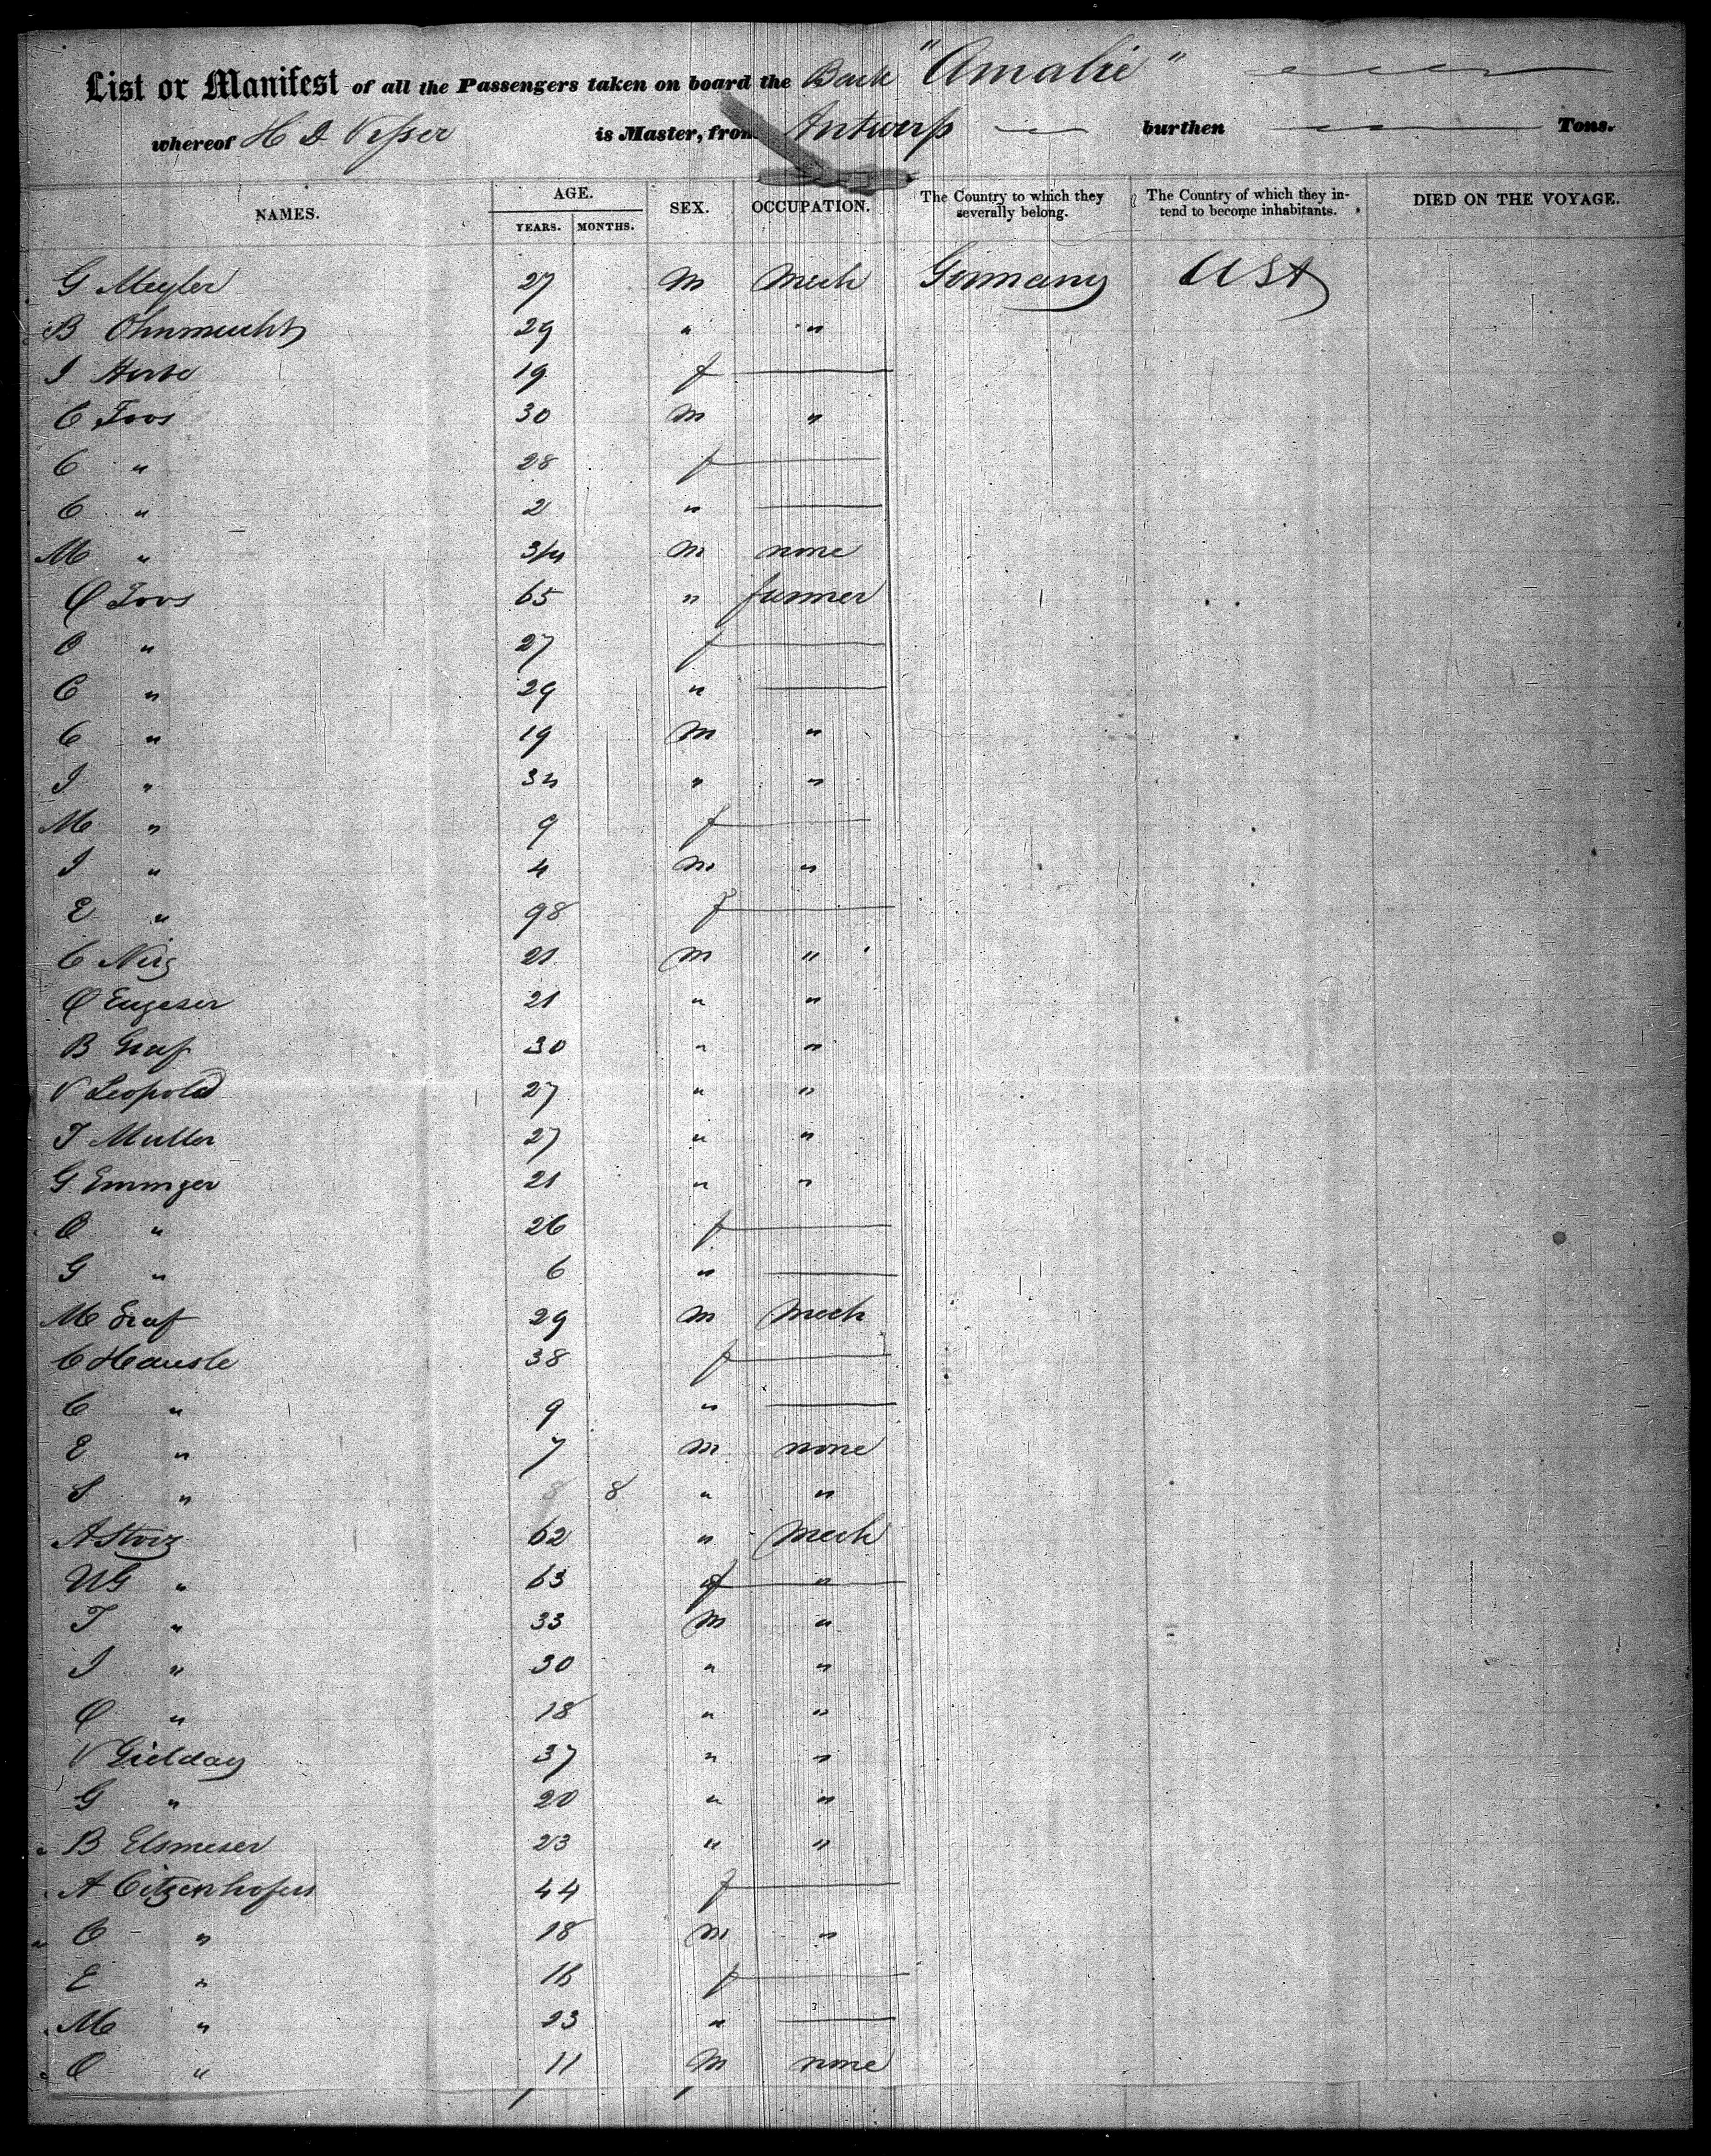 List or Manifest of all the Passengers taken on board the Bark "Amalie"
whereof H D is Master, from Antwerp burthen Tons.
NAMES. AGE. SEX. OCCUPATION. The Country to which they severally belong. The Country of which they in-tend to become inhabitants. DIED ON THE VOYAGE.
YEARS. MONTHS.
G 27 M Mech Germany USA
B 29 " "
I 19 f
C Foos 30 M "
C " 28 f
C " 2 "
M " 3/4 M none
Foos 65 " farmer
" 27 f
C " 29 "
C " 19 M "
I " "  "
M " 9 f
I " 4 M "
E " 98 f
C 21 M "
21 " "
B Graf 30 " "
V Leopold 27 " "
T Muller 27 " "
G Emminger 21 " "
" 26 f
G " 6 "
M Graf 29 M Mech
C Heausle 38 f
C " 9 "
E " 7 M none
S " 8 8 " "
A 62 " Mech
" 63 f "
T " 33 M "
I " 30 " "
" 18 " "
V Gielday 37 " "
G " 20 " "
B Elsmeser 23 " "
A Citzenhofer 44 f
" 18 M "
E " 16 f
M " 23 "
" 11 M none